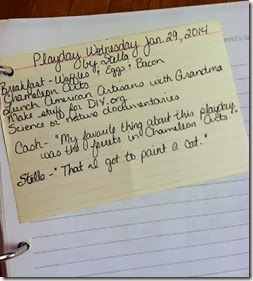 Playday Wednesday Jan. 29, 2014
by Stella
Breakfast - Waffles, Eggs & Bacon
Chameleon Arts
Lunch American Artisans with Grandma
Make stuff for DIY.org
Science or nature documentaries
Cash - "My favorite thing about this playday
was the ferrets in Chameleon Arts".
Stella - "That I got to paint a cat."